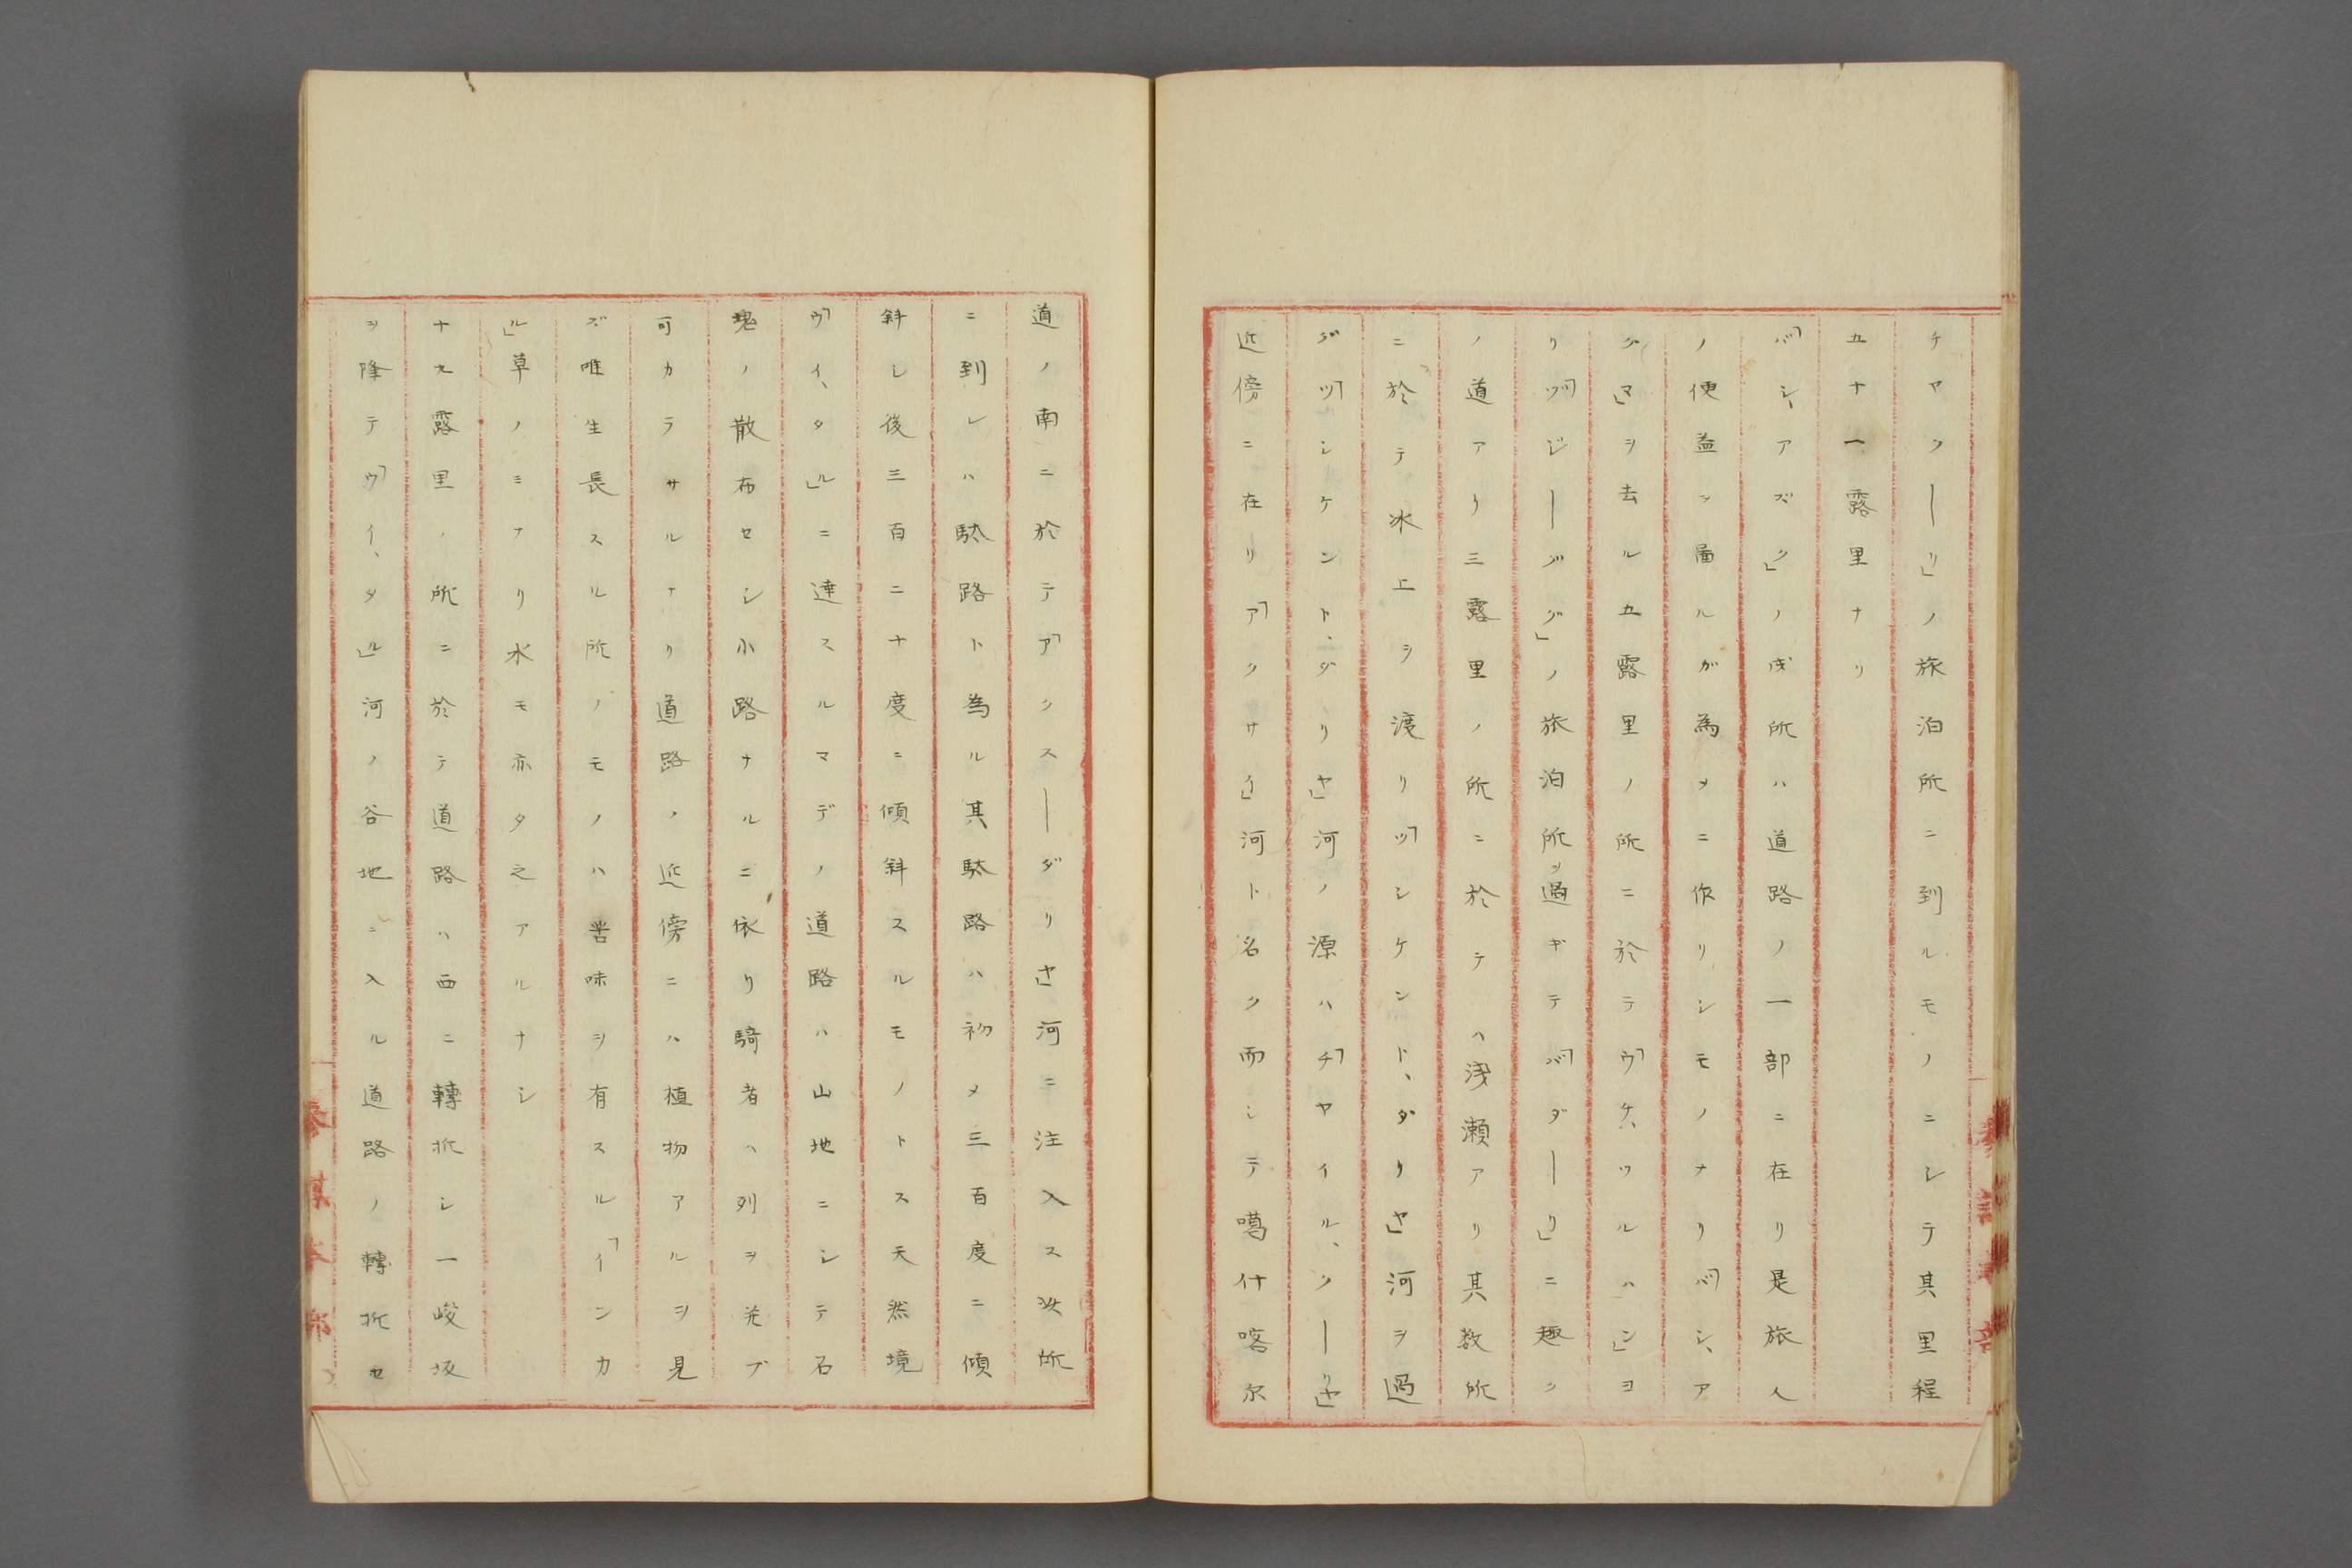 チヤク―リ」ノ旅泊所ニ到ルモノニシテ其里程
五十一露里ナリ
「バシ、アズク」ノ戍所ハ道路ノ一部ニ在リ是旅人
ノ便益ヲ圖ルガ為メニ作リシモノナリ「バシ、ア
グマ」ヲ去ル五露里ノ所ニ於テ「ウケ、ワルハン」ヨ
リ「ツジ―ググ」ノ旅泊所ヲ過ギテ「バダ―リ」ニ趣ク
ノ道アリ三露里ノ所ニ於テハ浅瀬アリ其数所
ニ於テ氷上ヲ渡リ「ツシケント、ダリヤ」河ヲ過
グ「ツシケント、ダリヤ」河ノ源ハ「チヤイル、ク―リヤ」
近傍ニ在リ「アクサイ」河ト名ク而シテ噶什喀尔
道ノ南ニ於テ「アクス―ダリヤ」河ニ注入ス次所
ニ到レハ駄路ト為ル其駄路ハ初メ三百度ニ傾
斜シ後三百二十度ニ傾斜スルモノトス天然境
「ウイ、タル」ニ達スルマデノ道路ハ山地ニシテ石
塊ノ散布セシ小路ナルニ依リ騎者ハ列ヲ並ブ
可カラサルナリ道路ノ近傍ニハ植物アルヲ見
ズ唯生長スル所ノモノハ苦味ヲ有スル「インカ
ル」草ノミナリ水モ亦タ之アルナシ
十九露里ノ所ニ於テ道路ハ西ニ轉折シ一峻坂
ヲ降テ「ウイ、タル」河ノ谷地ニ入ル道路ノ轉折セ
參謀本部